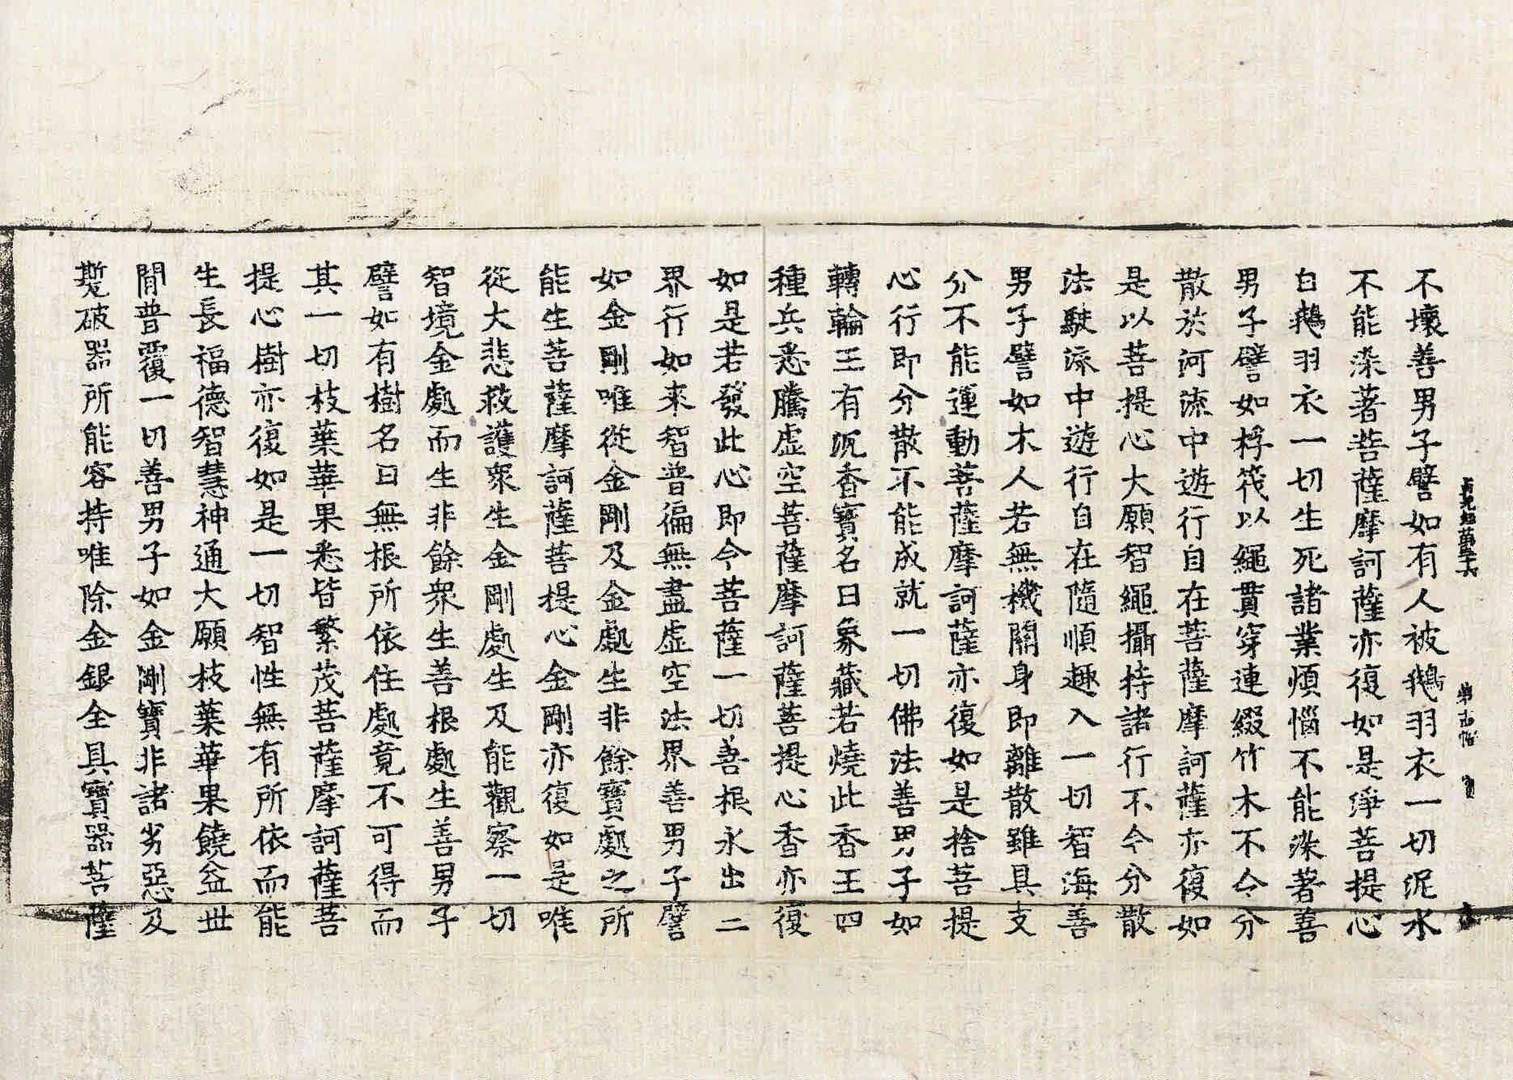 不壞善男子譬如有人被鵝羽衣一切泥水
不能染著菩薩摩訶薩亦復如是淨菩提心
白鵝羽衣一切生死諸業煩惱不能染著善
男子譬如桴筏以繩貫穿連綴竹木不令分
散於河流中遊行自在菩薩摩訶薩亦復如
是以菩提心大願智繩攝持諸行不令分散
法駛流中遊行自在隨順趣入一切智海善
男子譬如木人若無機關身即離散雖具支
分不能運動菩薩摩訶薩亦復如是捨菩提
心行即分散不能成就一切佛法善男子如
轉輪王有沉香寶名曰象藏若燒此香王四
種兵悉騰虛空菩薩摩訶薩菩提心香亦復
如是若發此心即令菩薩一切善根永出二
界行如來智普徧無盡虛空法界善男子譬
如金剛唯從金剛及金處生非餘寶處之所
能生菩薩摩訶薩菩提心金剛亦復如是唯
從大悲救護眾生金剛處生及能觀察一切
智境金處而生非餘眾生善根處生善男子
譬如有樹名曰無根所依住處竟不可得而
其一切枝葉華果悉皆繁茂菩薩摩訶薩菩
提心樹亦復如是一切智性無有所依而能
生長福德智慧神通大願枝葉華果饒益世
間普覆一切善男子如金剛寶非諸劣惡及
璺破器所能容持唯除金銀全具寶器菩薩